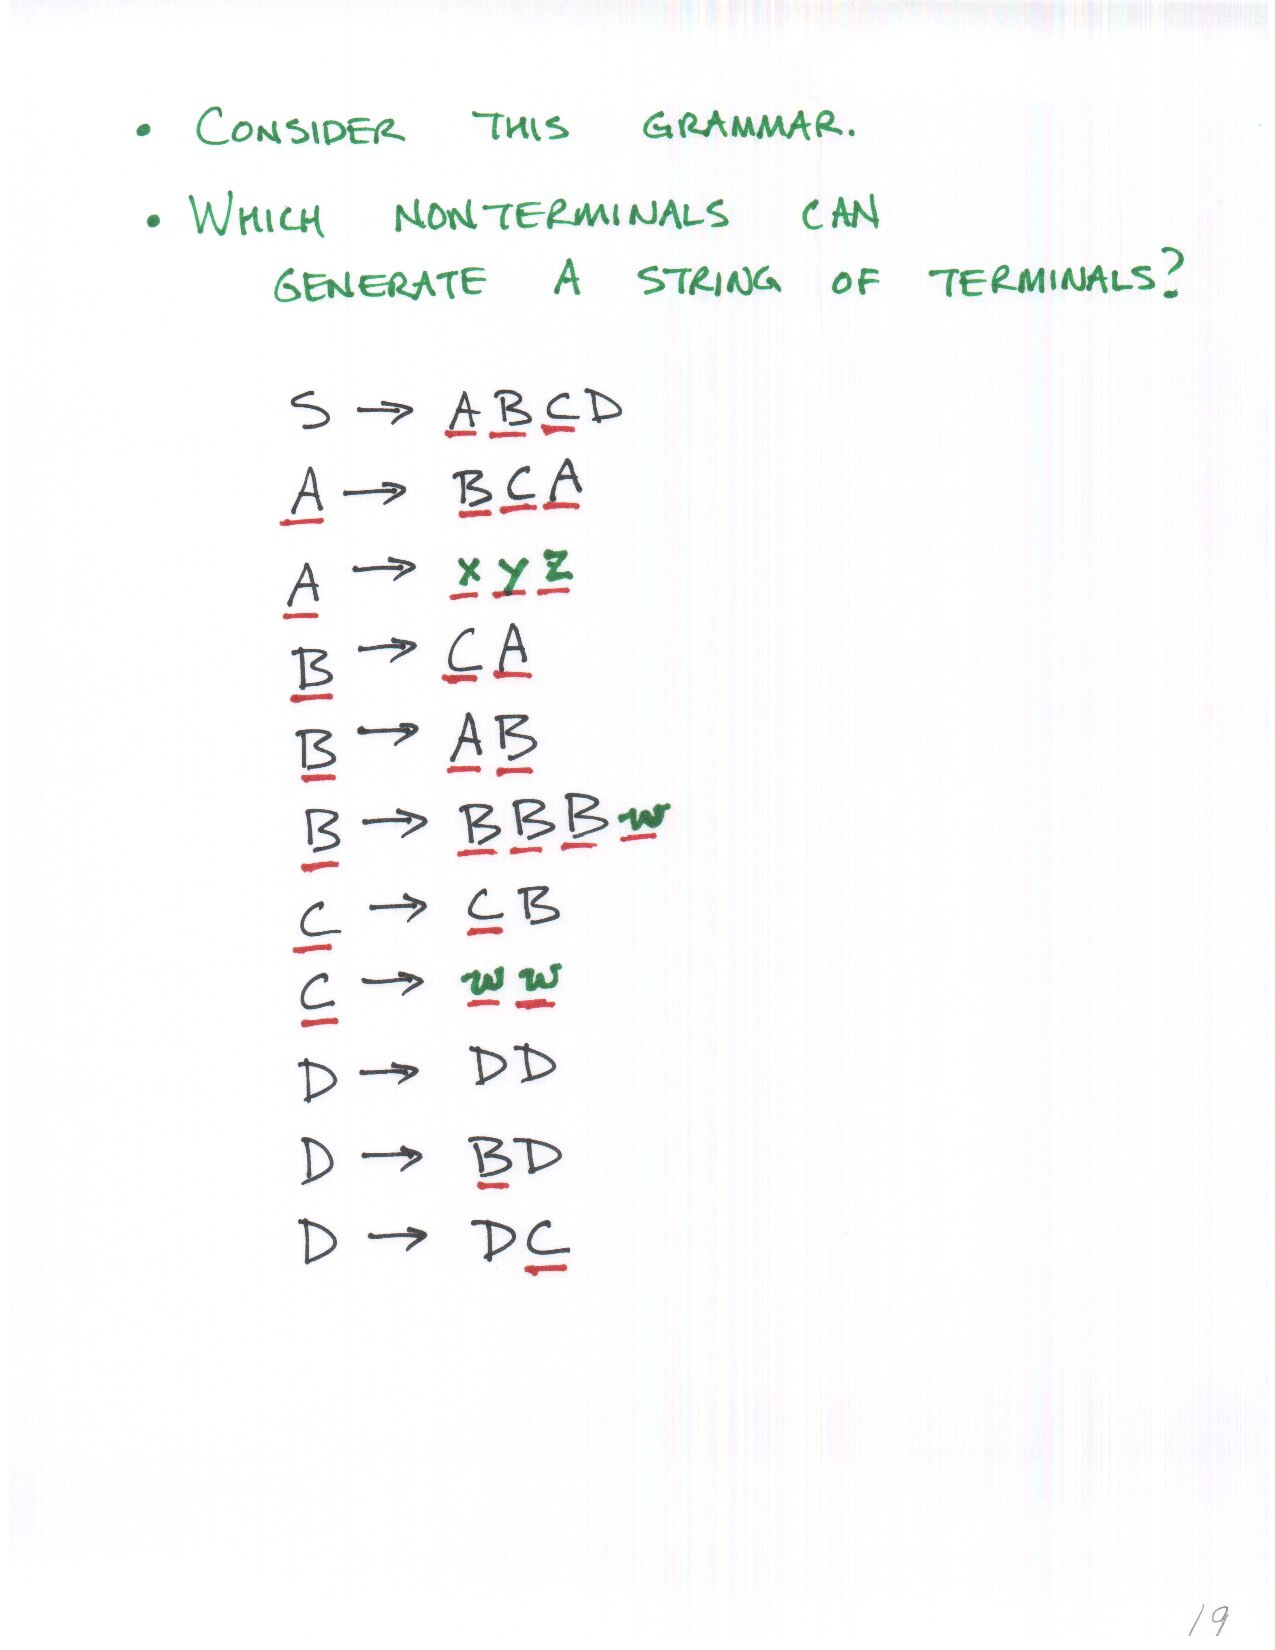 • CONSIDER THIS GRAMMAR.
• WHICH NONTERMINALS CAN
GENERATE A STRING OF TERMINALS?
S → ABCD
A → BCA
A → xyz
B → CA
B → AB
B → BBBw
C → CB
C → ww
D → DD
D → BD
D → DC
19